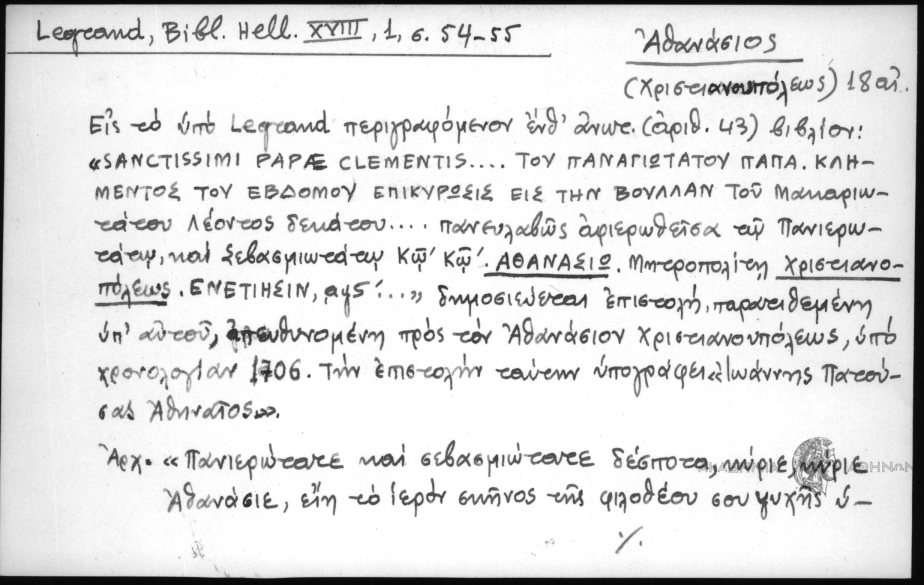 Legrand, Bibl. Hell. XVIII, 1, σ. 54-55
Ἀθανάσιος
(Χριστιανουπόλεως) 18 αἰ.
Εἰς τὸ ὑπὸ Legrand περιγραφόμενον ἐνθ' ἀνωτ. (ἀριθ. 43) βιβλίον:
«SANCTISSIMI PAPÆ CLEMENTIS.... ΤΟΥ ΠΑΝΑΓΙΩΤΑΤΟΥ ΠΑΠΑ. ΚΛΗ-
ΜΕΝΤΟΣ ΤΟΥ ΕΒΔΟΜΟΥ ΕΠΙΚΥΡΩΣΙΣ ΕΙΣ ΤΗΝ ΒΟΥΛΛΑΝ Τοῦ Μακαριω-
τάτου Λέοντος δεκάτου.... πανευλαβῶς ἀφιερωθεῖσα τῷ Πανιερω-
τάτῳ, καὶ Σεβασμιωτάτῳ Κῷ' Κῷ'. ΑΘΑΝΑΣΙΩ. Μητροπολίτῃ Χριστιανο-
πόλεως. ΕΝΕΤΙΗΣΙΝ, αψς'...» δημοσιεύεται ἐπιστολή, παρατιθεμένη
ὑπ' αὐτοῦ, ἀπευθυνομένη πρὸς τὸν Ἀθανάσιον Χριστιανουπόλεως, ὑπὸ
χρονολογίαν 1706. Τὴν ἐπιστολὴν ταύτην ὑπογράφει «Ἰωάννης Πατού-
σας Ἀθηναῖος».
Ἀρχ. «Πανιερώτατε καὶ σεβασμιώτατε δέσποτα, κύριε, κύριε
Ἀθανάσιε, εἴη τὸ ἱερὸν σκῆνος τῆς φιλοθέου σου ψυχῆς ὑ-
./.